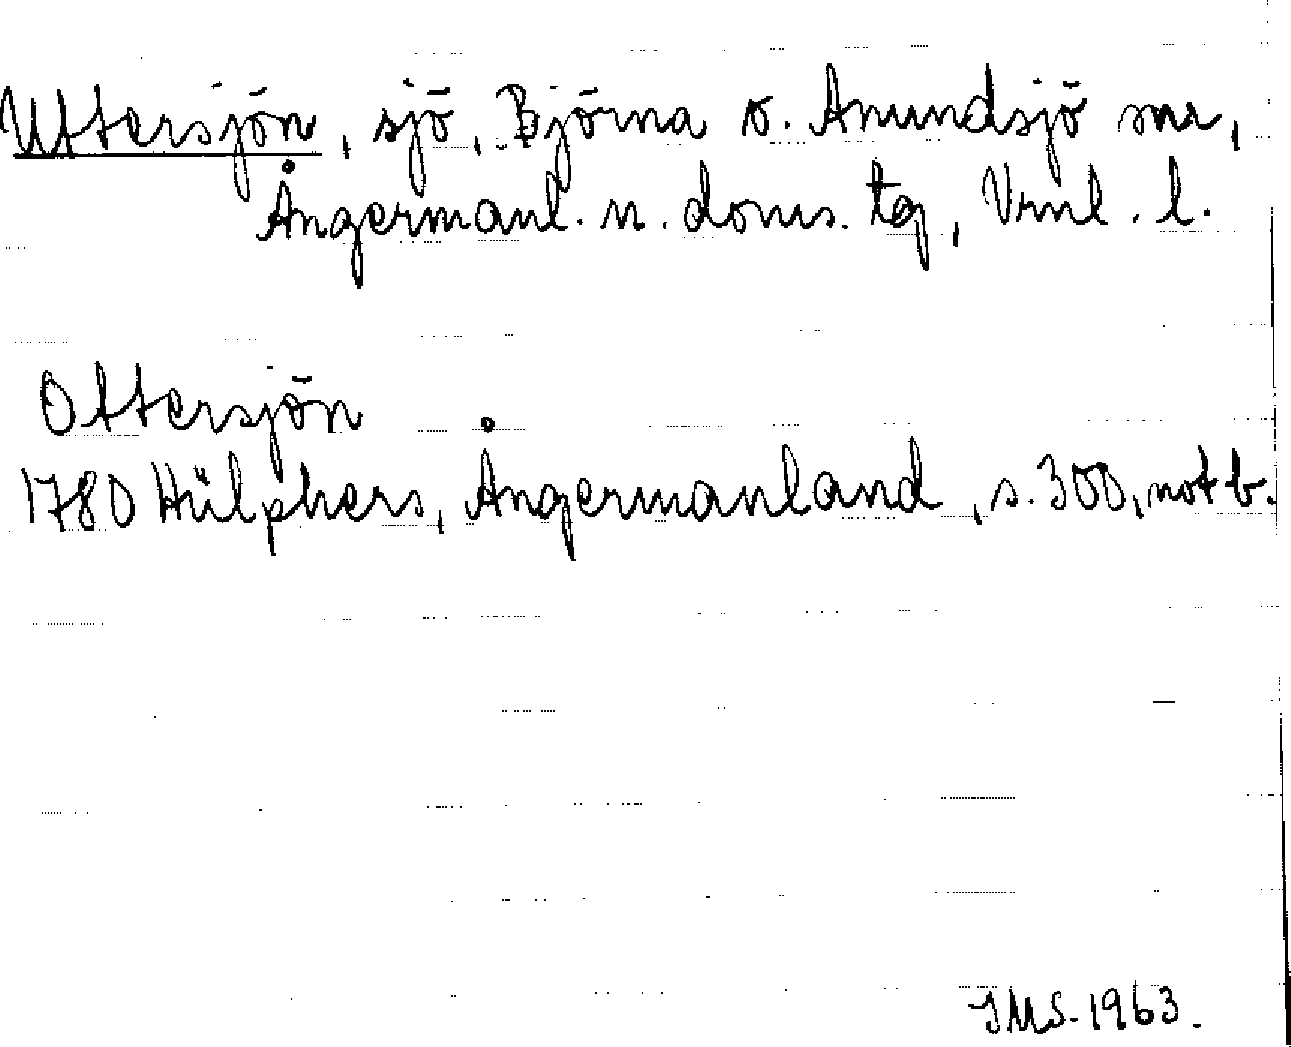 Uttersjön, sjö, Björna o. Anundsjö snr,
Ångermanl. n. doms. tg, Vrnl. l.
Ottersjön
1780 Hülphers, Ångermanland, s. 300, not b.
IMS. 1963.